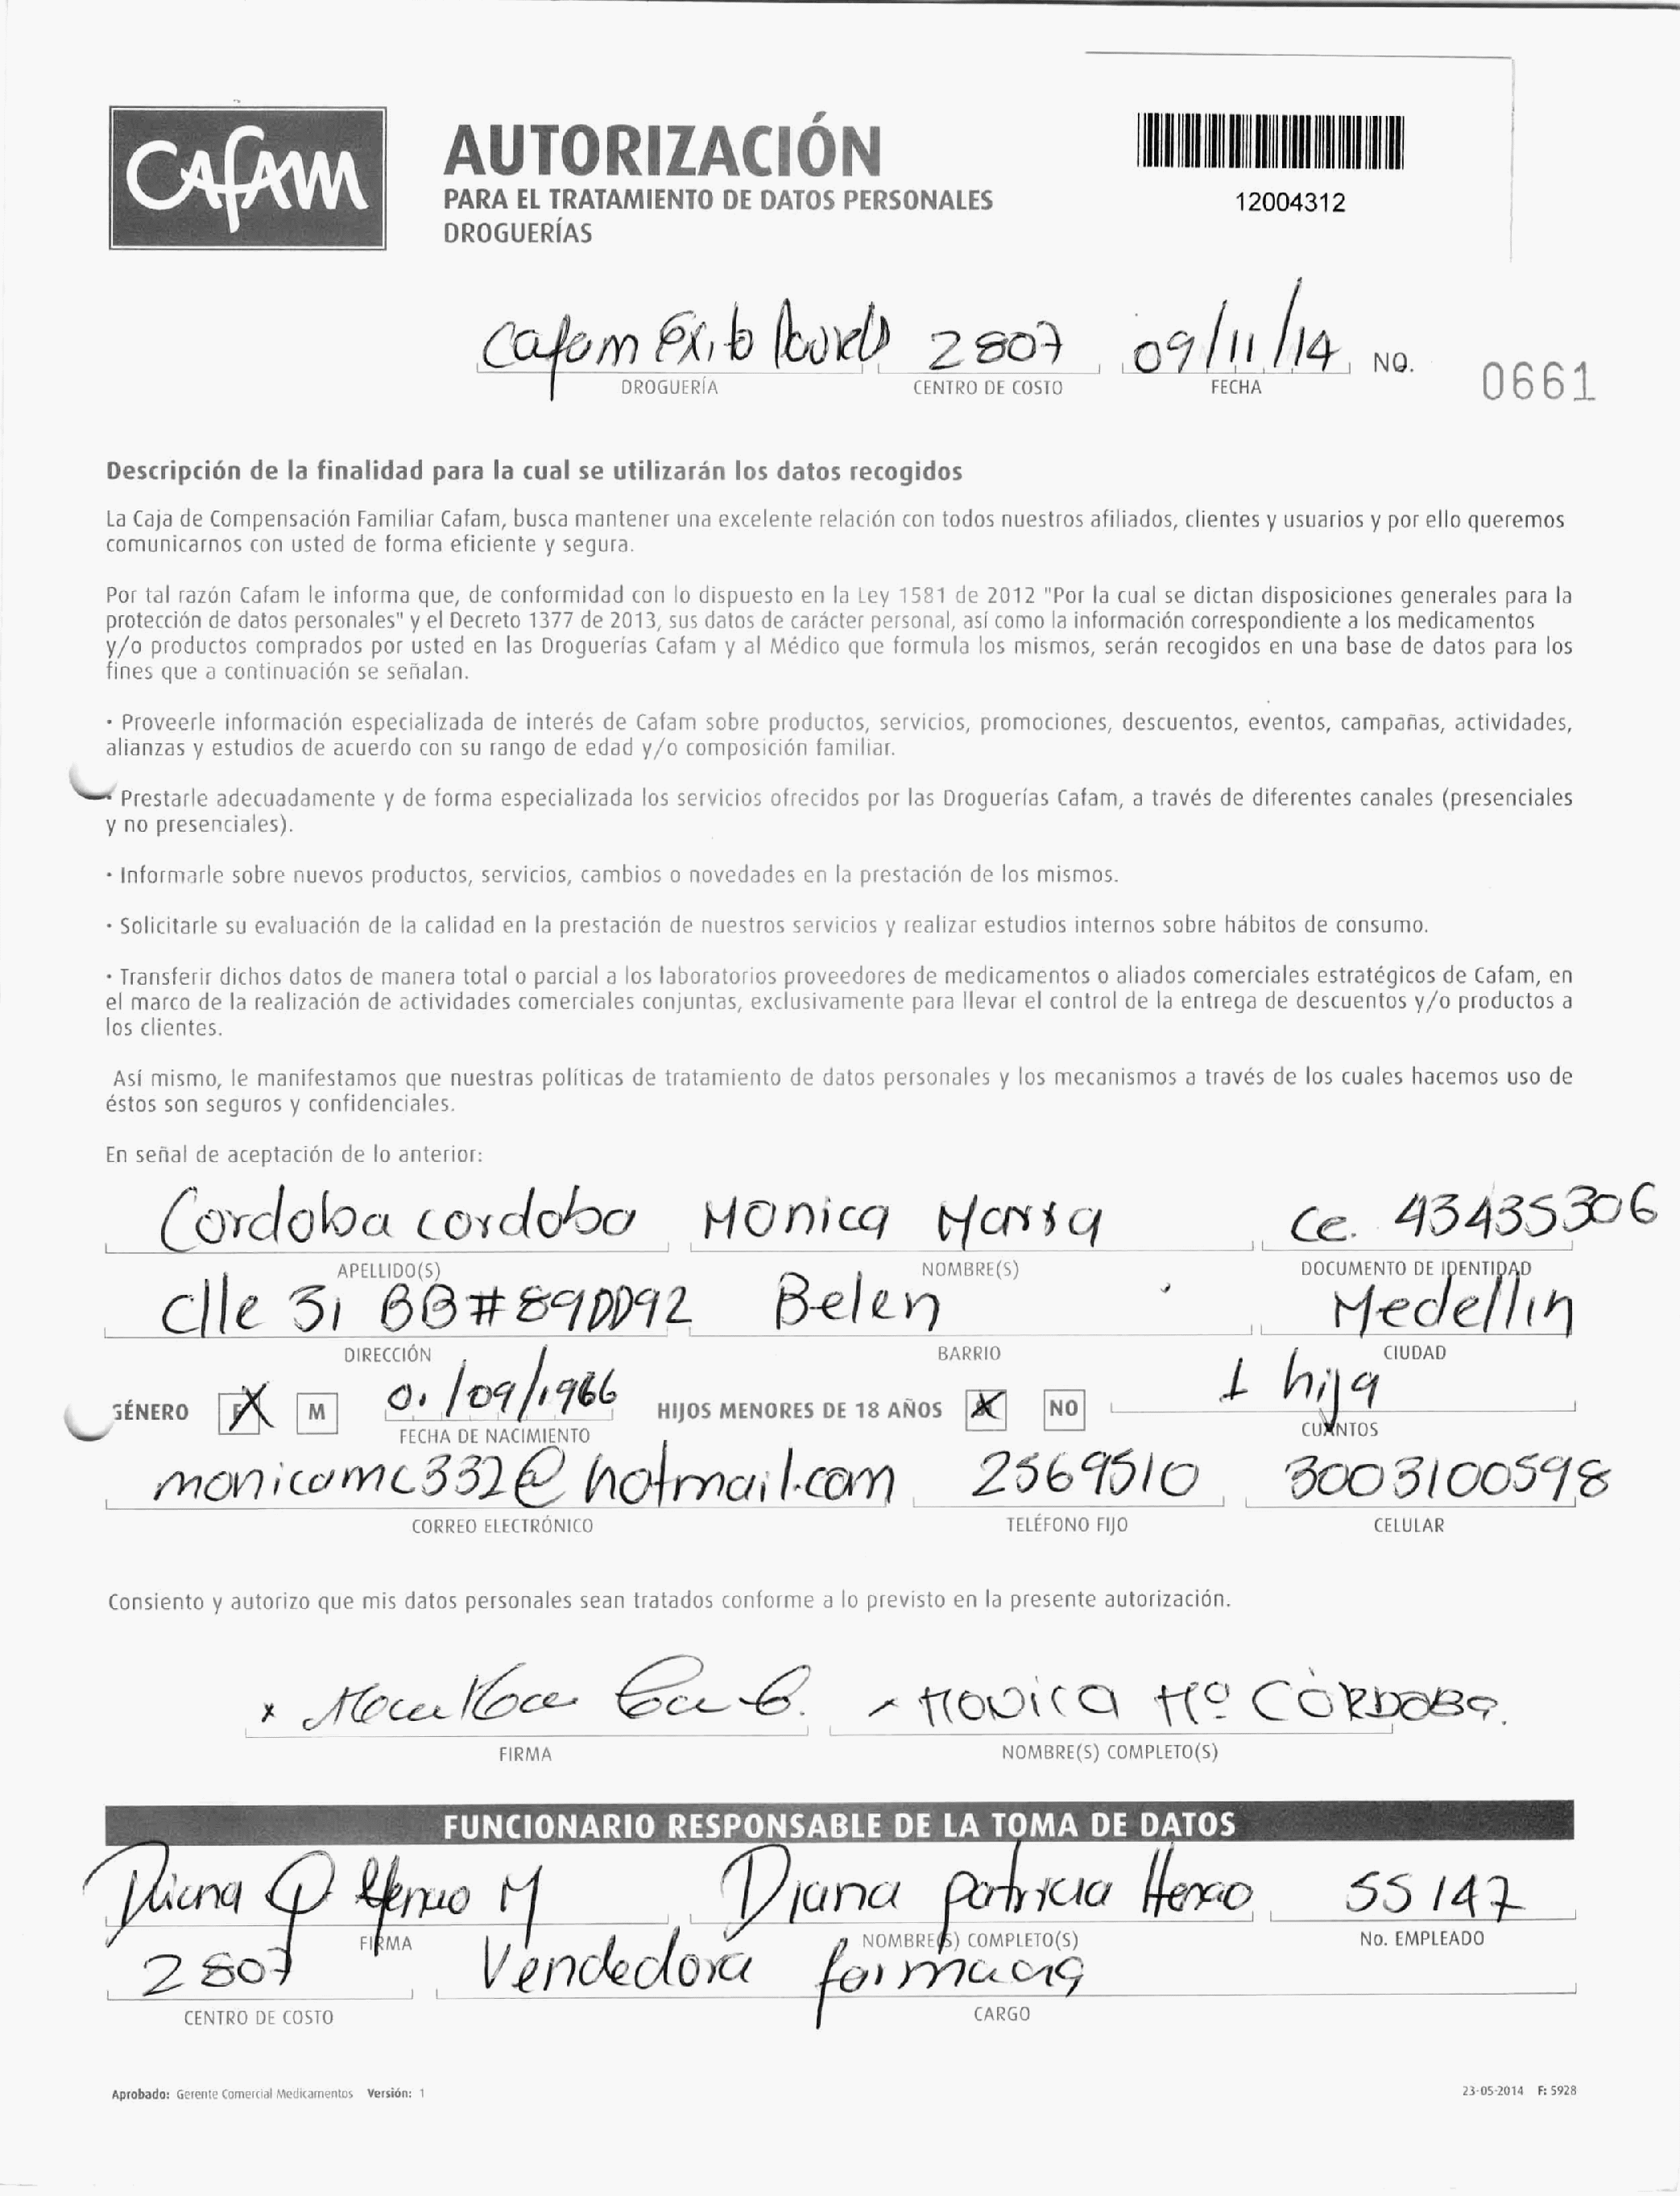 Cafam
AUTORIZACIÓN
PARA EL TRATAMIENTO DE DATOS PERSONALES
DROGUERÍAS
12004312
Cafam Exito 2807 09/11/14 NO. 0661
DROGUERÍA CENTRO DE COSTO FECHA
Descripción de la finalidad para la cual se utilizarán los datos recogidos
La Caja de Compensación Familiar Cafam, busca mantener una excelente relación con todos nuestros afiliados, clientes y usuarios y por ello queremos
comunicarnos con usted de forma eficiente y segura.
Por tal razón Cafam le informa que, de conformidad con lo dispuesto en la Ley 1581 de 2012 "Por la cual se dictan disposiciones generales para la
protección de datos personales" y el Decreto 1377 de 2013, sus datos de carácter personal, así como la información correspondiente a los medicamentos
y/o productos comprados por usted en las Droguerías Cafam y al Médico que formula los mismos, serán recogidos en una base de datos para los
fines que a continuación se señalan.
· Proveerle información especializada de interés de Cafam sobre productos, servicios, promociones, descuentos, eventos, campañas, actividades,
alianzas y estudios de acuerdo con su rango de edad y/o composición familiar.
· Prestarle adecuadamente y de forma especializada los servicios ofrecidos por las Droguerías Cafam, a través de diferentes canales (presenciales
y no presenciales).
· Informarle sobre nuevos productos, servicios, cambios o novedades en la prestación de los mismos.
· Solicitarle su evaluación de la calidad en la prestación de nuestros servicios y realizar estudios internos sobre hábitos de consumo.
· Transferir dichos datos de manera total o parcial a los laboratorios proveedores de medicamentos o aliados comerciales estratégicos de Cafam, en
el marco de la realización de actividades comerciales conjuntas, exclusivamente para llevar el control de la entrega de descuentos y/o productos a
los clientes.
Así mismo, le manifestamos que nuestras políticas de tratamiento de datos personales y los mecanismos a través de los cuales hacemos uso de
éstos son seguros y confidenciales.
En señal de aceptación de lo anterior:
Cordoba cordoba Monica Ce. 43435306
APELLIDO(S) NOMBRE(S) DOCUMENTO DE IDENTIDAD
clle 31 BB#89DD92 Belen Medellin
DIRECCIÓN BARRIO CIUDAD
GÉNERO F M 01/09/1966 HIJOS MENORES DE 18 AÑOS SI NO 1 hija
FECHA DE NACIMIENTO CUANTOS
monicamc332@hotmail.com 2569510 3003100598
CORREO ELECTRÓNICO TELÉFONO FIJO CELULAR
Consiento y autorizo que mis datos personales sean tratados conforme a lo previsto en la presente autorización.
x Monica Mº Cordoba.
FIRMA NOMBRE(S) COMPLETO(S)
FUNCIONARIO RESPONSABLE DE LA TOMA DE DATOS
Diana P Henao M Diana patricia Henao 55147
FIRMA NOMBRE(S) COMPLETO(S) No. EMPLEADO
2807 Vendedora farmacia
CENTRO DE COSTO CARGO
Aprobado: Gerente Comercial Medicamentos Versión: 1 23-05-2014 F: 5928